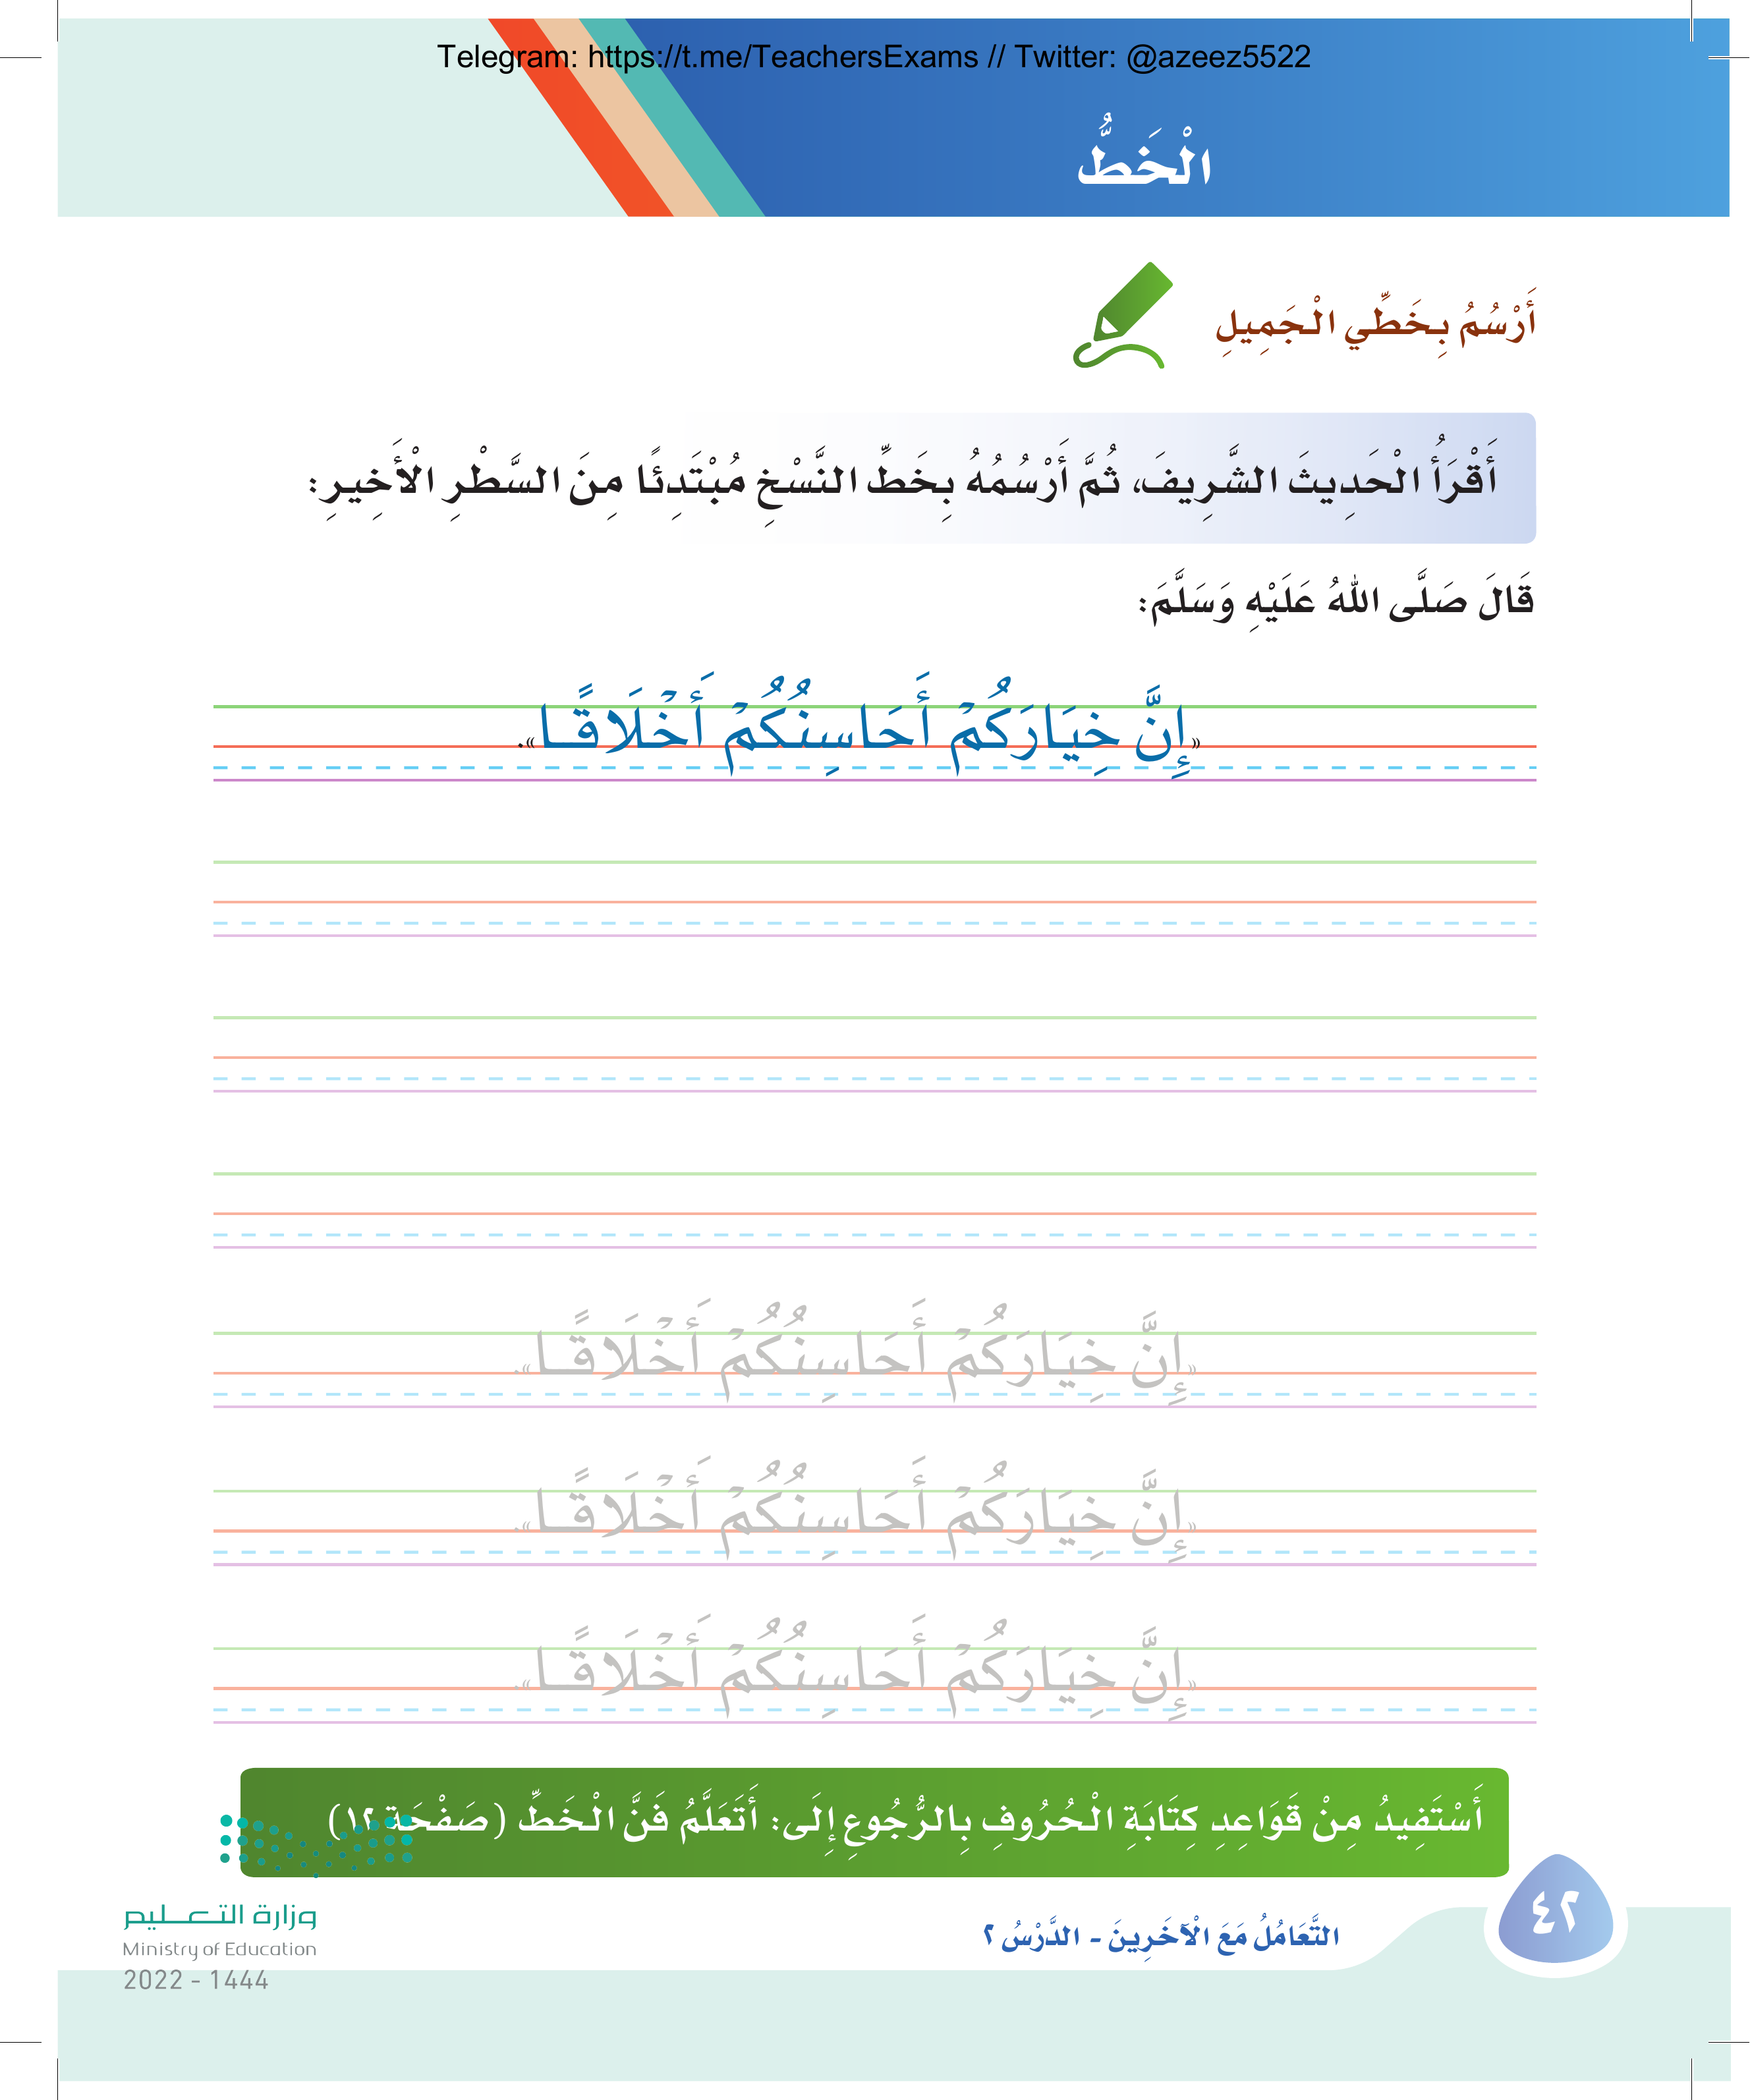 Telegram: https://t.me/TeachersExams // Twitter: @azeez5522
الْخَطُّ
أَرْسُمُ بِخَطِّي الْجَمِيلِ
أَقْرَأُ الْحَدِيثَ الشَّرِيفَ، ثُمَّ أَرْسُمُهُ بِخَطِّ النَّسْخِ مُبْتَدِئًا مِنَ السَّطْرِ الْأَخِيرِ:
قَالَ صَلَّى اللهُ عَلَيْهِ وَسَلَّمَ:
«إِنَّ خِيَارَكُمْ أَحَاسِنُكُمْ أَخْلَاقًا».
«إِنَّ خِيَارَكُمْ أَحَاسِنُكُمْ أَخْلَاقًا».
«إِنَّ خِيَارَكُمْ أَحَاسِنُكُمْ أَخْلَاقًا».
«إِنَّ خِيَارَكُمْ أَحَاسِنُكُمْ أَخْلَاقًا».
أَسْتَفِيدُ مِنْ قَوَاعِدِ كِتَابَةِ الْحُرُوفِ بِالرُّجُوعِ إِلَى: أَتَعَلَّمُ فَنَّ الْخَطِّ (صَفْحَة ١٢)
٤٢
التَّعَامُلُ مَعَ الْآخَرِينَ - الدَّرْسُ ٢
وزارة التعليم
Ministry of Education
2022 - 1444